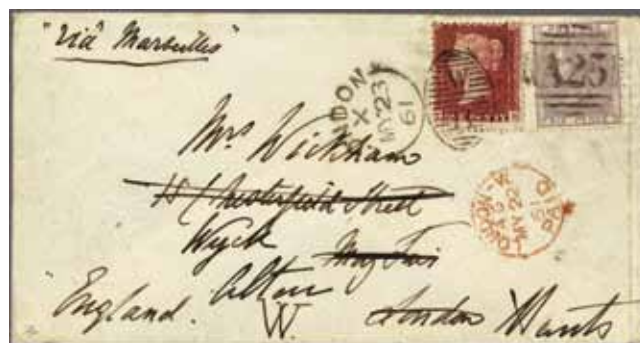 "via Marseilles"
LONDON
X
MY 23
61
A25
Mrs Wickham
15 Chesterfield Street
Wyck May Fair
Alton
England. W. London Hants
LONDON
MY 22
61
PAID